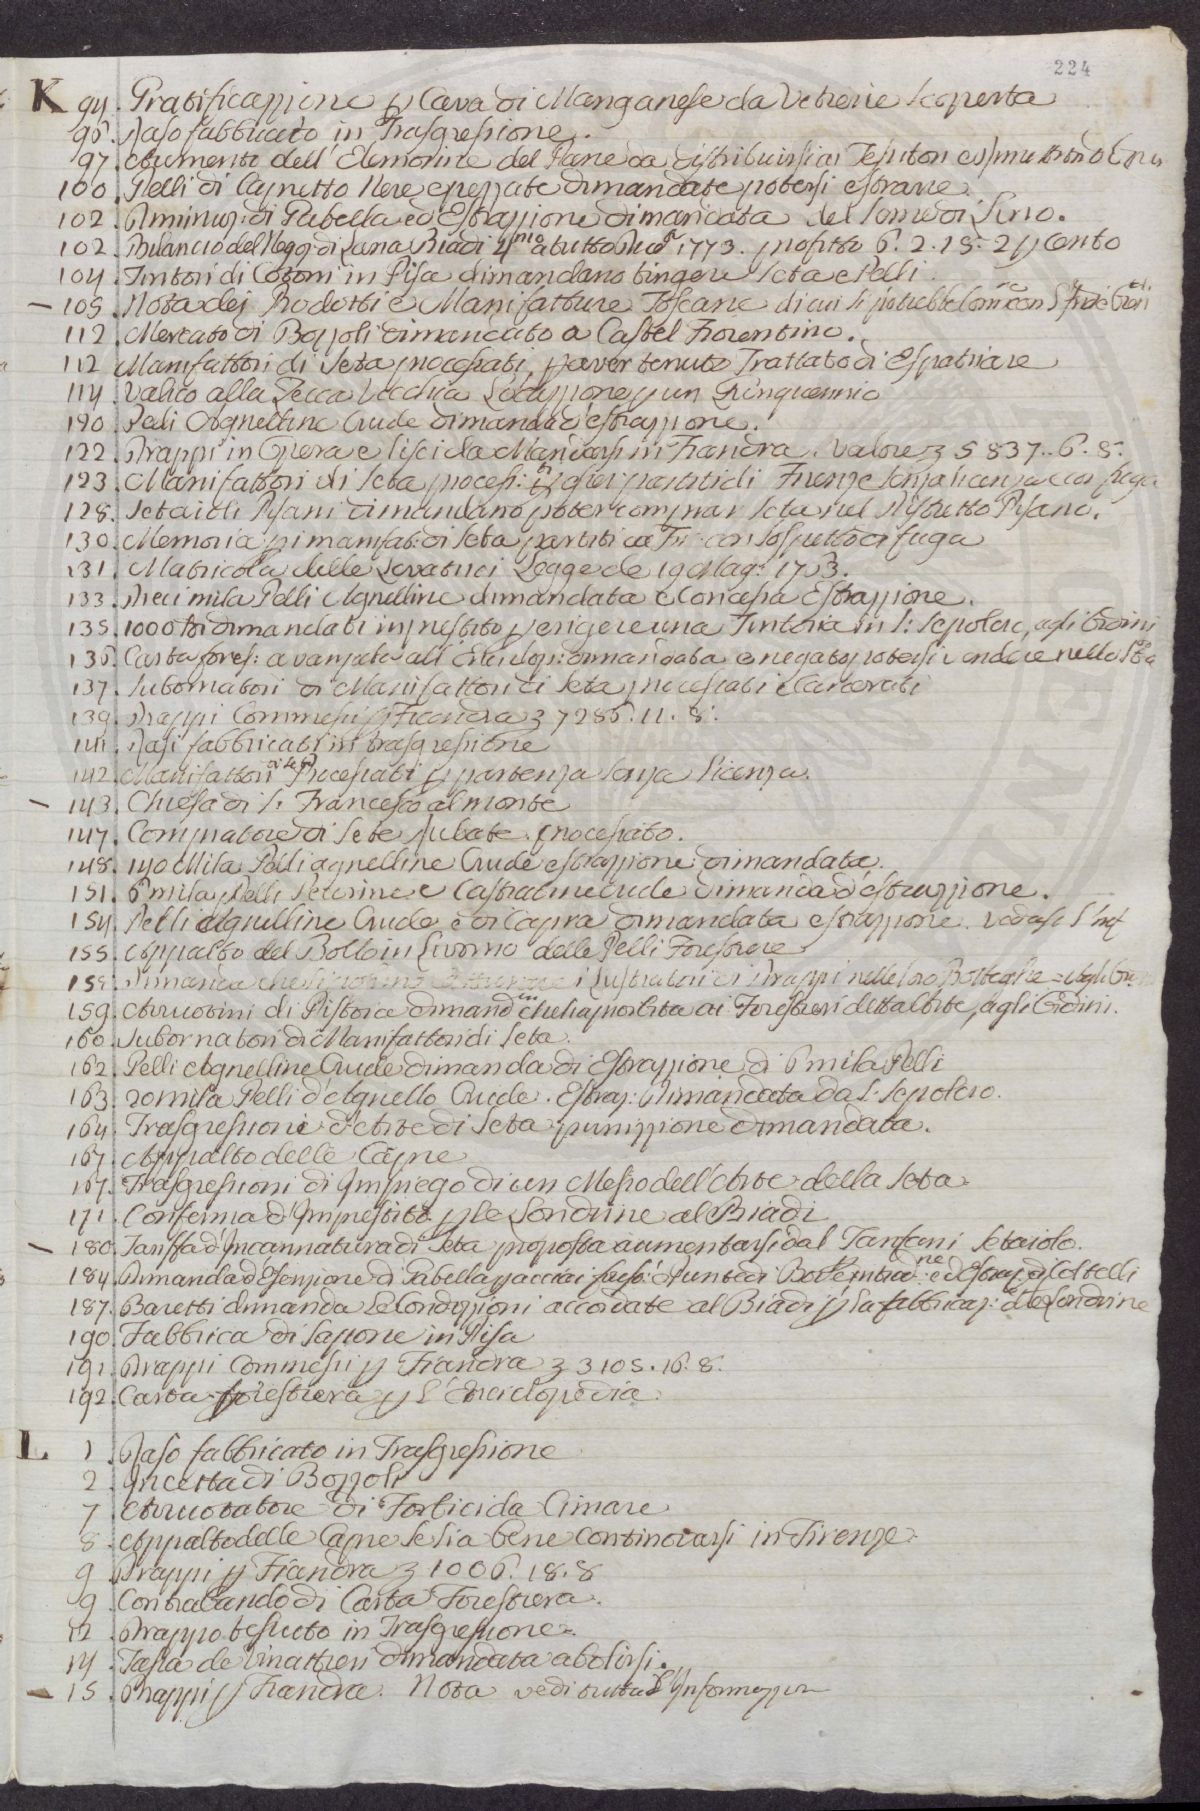 224
K 94. Gratificazzione p Cava di Manganese da Vetrerie scoperta
96. Raso fabbricato in Trasgressione.
97. Aumento dell' Elemosine del Pane da distribuirsi ai Tessitori
100. Pelli di Capretto Nere e pezzate dimandate potersi estrarre
102. di Gabella ed Estrazzione dimandata del
102. Bilancio del Neg. di Lana Biadi a tutto 1773. profitto 6. 2. 15. 2 p Cento
104. Tintori di Cotoni in Pisa dimandano tingere Seta e Pelli
— 105. Nota dei Prodotti e Manifatture Toscane di cui si potrebbe
112. Mercato di Bozzoli dimandato a Castel Fiorentino.
112 Manifattori di Seta processati p aver tenuto Trattato di Espatriare
114. Valico alla Zecca Vecchia Locazzione p un Quinquennio
120. Pelli Agnelline Crude dimanda d'estrazzione.
122. Drappi in Opera e lisci da Mandarsi in Fiandra. Valore 5837.. 6. 8.
123. Manifattori di Seta process: p esser partiti di Firenze senza licenza
128. Setaioli Pisani dimandano poter comprar Seta nel Distretto Pisano.
130. Memoria p i manifat: di Seta partiti da Fir: con sospetto di fuga
131. Matricola delle Levatrici Legge de 19 Mag: 1773.
133. Dieci mila Pelli Agnelline dimandata e Concessa Estrazzione.
135. 1000 dimandati in prestito p erigere una Tintoria in S: Sepolcro, agli Ordini
136. Carta fores: avanzata all' Enciclop: dimandata e negato potersi vendere nello
137. Subornatori di Manifattori di Seta processati e Carcerati
139. Drappi Commessi p Fiandra 7286. 11. 8.
141. Rasi fabbricati in trasgressione
142. Manifattori di Seta Processati p partenza senza licenza.
— 143. Chiesa di S. Francesco al monte
147. Compratore di Sete rubate processato.
148. 140 Mila Pelli agnelline Crude estrazzione dimandata.
151. 6 mila Pelli Pecorine e Castratine crude dimanda d'estrazzione.
154. Pelli Agnelline Crude e di Capra dimandata estrazzione. vedasi l'inf
155. Appalto del Bollo in Livorno delle Pelli Forestiere
158. Dimanda che i Lustratori di Drappi nelle loro Botteghe
159. Arruotini di Pistoia dimand: che sia proibita ai Forestieri dett'arte, agli Ordini.
160. Subornatori di Manifattori di Seta.
162. Pelli Agnelline Crude dimanda di Estrazzione di 6 mila Pelli
163. 20 mila Pelli d'Agnello Crude. Estraz: dimandata da S: Sepolcro.
164. Trasgressioni d'Arte di Seta punizzione dimandata.
167. Appalto delle Capre
167. Trasgressioni di Impiego di un Messo dell'Arte della Seta
171. Conferma d'Imprestito p le Londrine al Biadi
— 180. Tariffa d'Incannatura di Seta proposta aumentarsi dal Tanfani Setaiolo.
184. Dimanda d'Esenzione di Gabella p acciai ed Estraz: di Coltelli
187. Baretti dimanda le Condizzioni accordate al Biadi p la fabbricaz: delle Londrine
190 Fabbrica di Sapone in Pisa
191. Drappi Commessi p Fiandra 3105. 16. 8.
192. Carta forestiera p l'Enciclopedia.
L 1. Raso fabbricato in Trasgressione
2. Incetta di Bozzoli
7 Arruotatore di Forbici da Cimare
8. Appalto delle Capre se sia bene continovarsi in Firenze.
9. Drappi p Fiandra 1006. 18. 8
9. Contrabando di Carta Forestiera.
12. Drappo tessuto in Trasgressione.
14. Tassa de Vinattieri dimandata abolirsi.
— 15. Drappi p Fiandra. Nota vedi tutta l'Informazzion